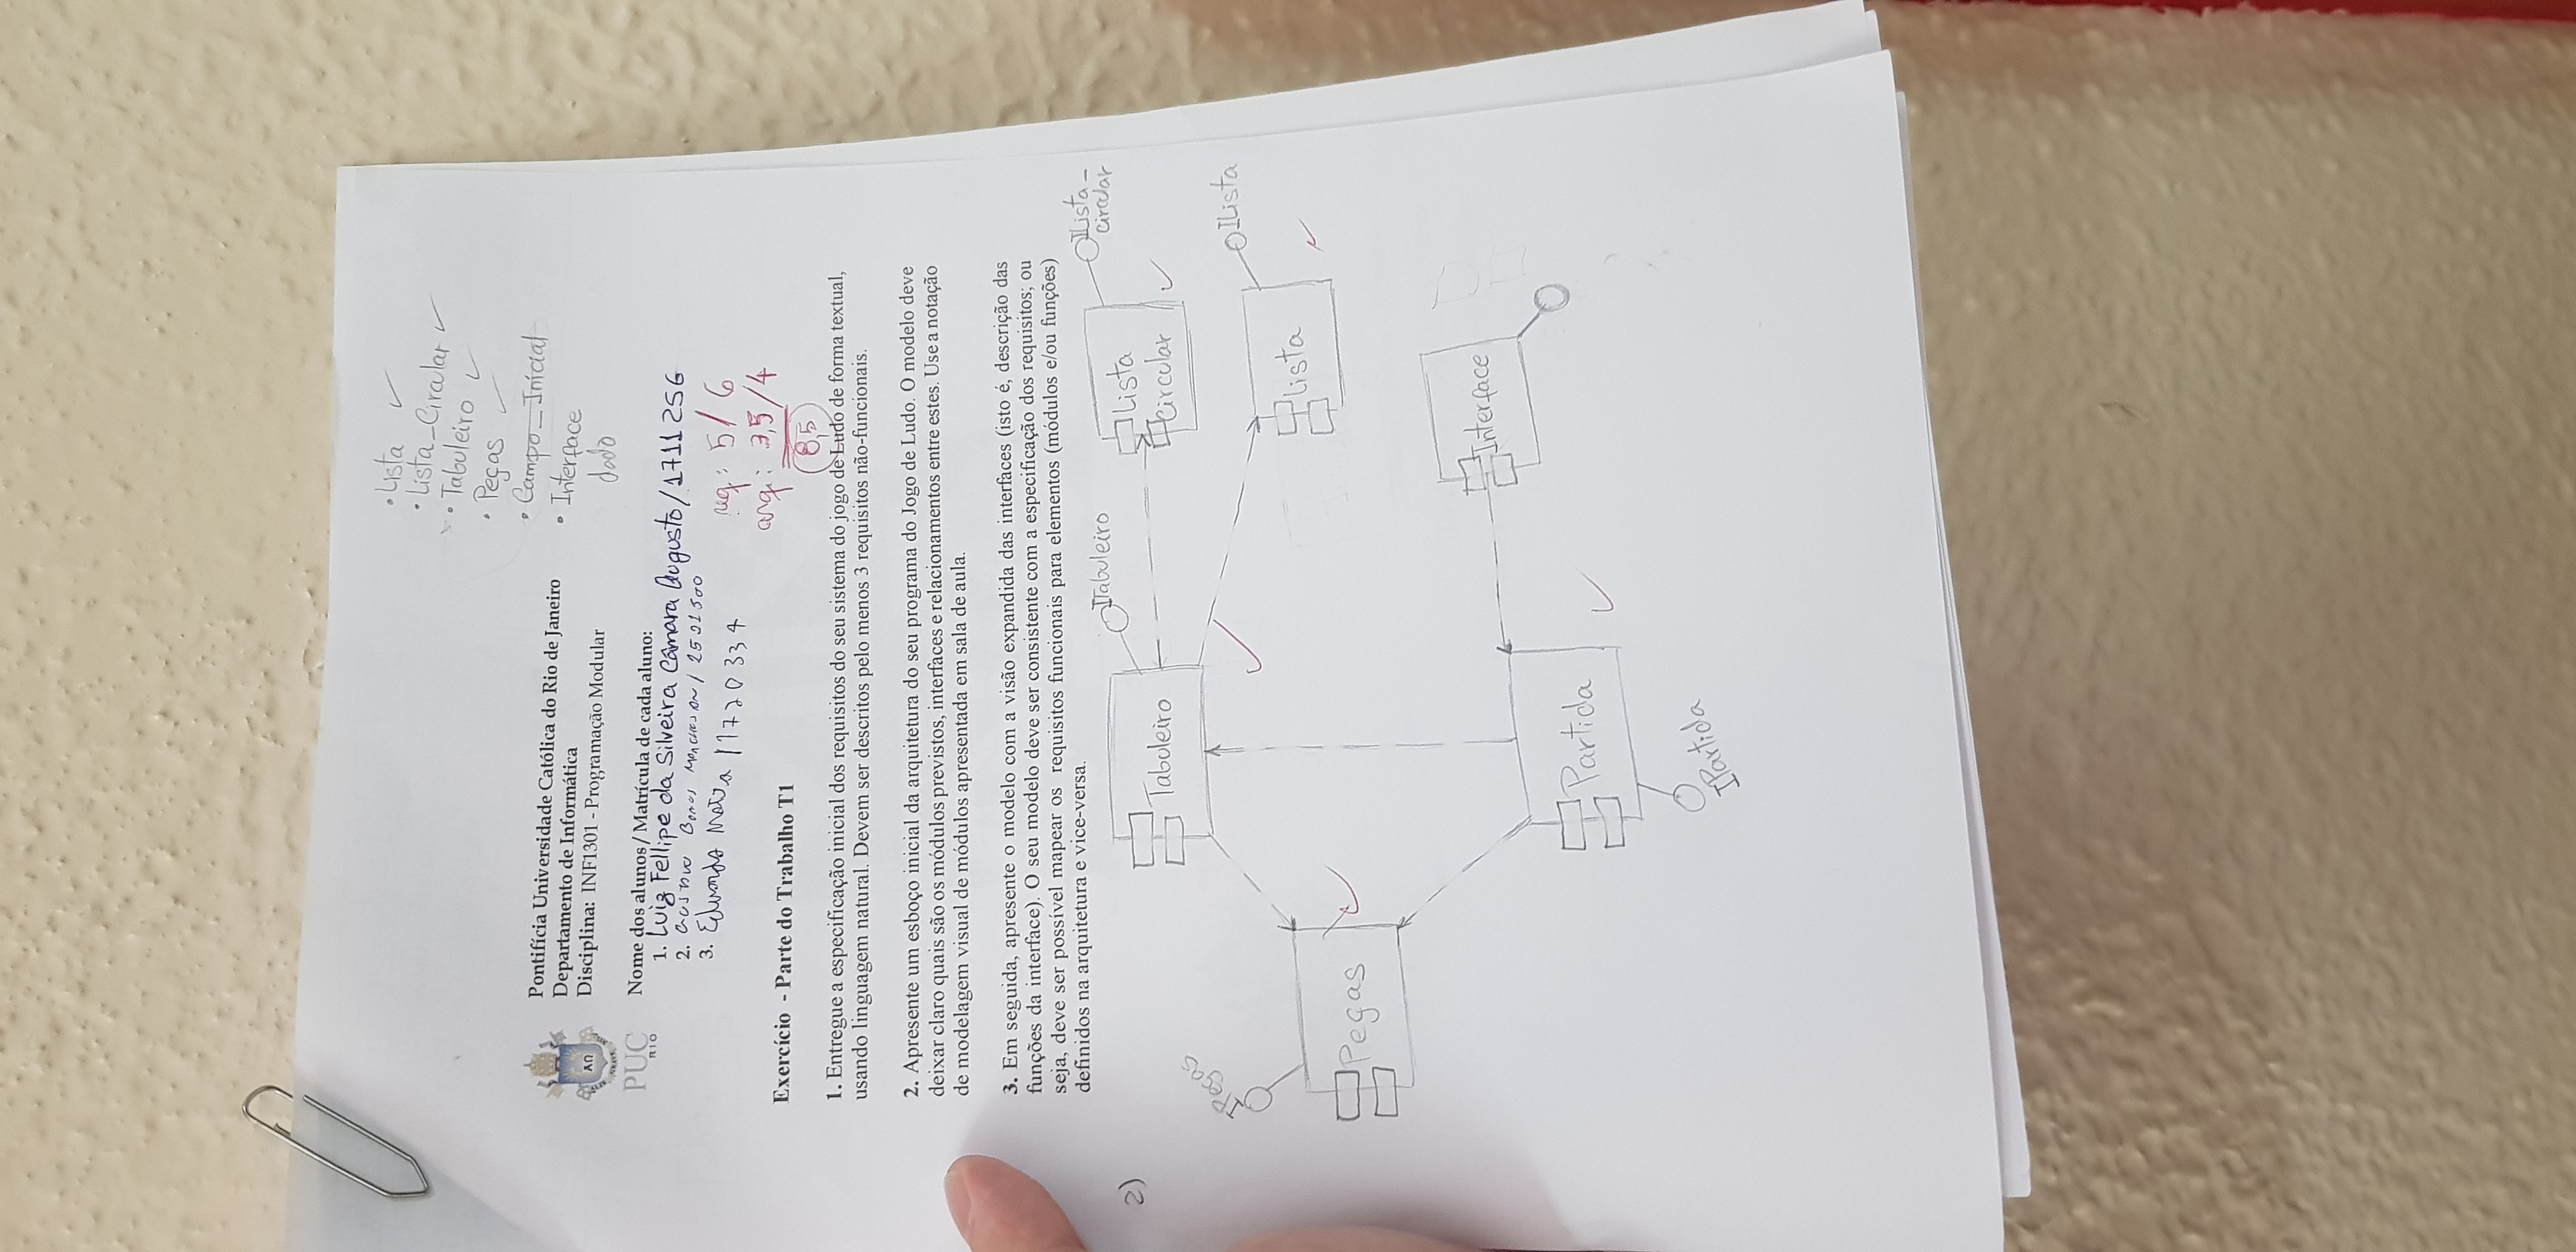 • Lista ✓
• Lista_Circular ✓
• Tabuleiro ✓
• Peças ✓
• Campo_Inicial
• Interface
dado
Pontifícia Universidade Católica do Rio de Janeiro
Departamento de Informática
Disciplina: INF1301 - Programação Modular
ΑΩ
PUC
RIO
Nome dos alunos / Matrícula de cada aluno:
1. Luiz Fellipe da Silveira Câmara Augusto / 1711256
2.
3. Eduardo Motta / 1720334
req: 5/6
arq: 3,5/4
8,5
Exercício - Parte do Trabalho T1
1. Entregue a especificação inicial dos requisitos do seu sistema do jogo de Ludo de forma textual,
usando linguagem natural. Devem ser descritos pelo menos 3 requisitos não-funcionais.
2. Apresente um esboço inicial da arquitetura do seu programa do Jogo de Ludo. O modelo deve
deixar claro quais são os módulos previstos, interfaces e relacionamentos entre estes. Use a notação
de modelagem visual de módulos apresentada em sala de aula.
3. Em seguida, apresente o modelo com a visão expandida das interfaces (isto é, descrição das
funções da interface). O seu modelo deve ser consistente com a especificação dos requisitos; ou
seja, deve ser possível mapear os requisitos funcionais para elementos (módulos e/ou funções)
definidos na arquitetura e vice-versa.
2)
ITabuleiro
ILista_
circular
Tabuleiro
Lista
Circular
IPeças
ILista
Lista
Peças
Interface
Partida
IPartida